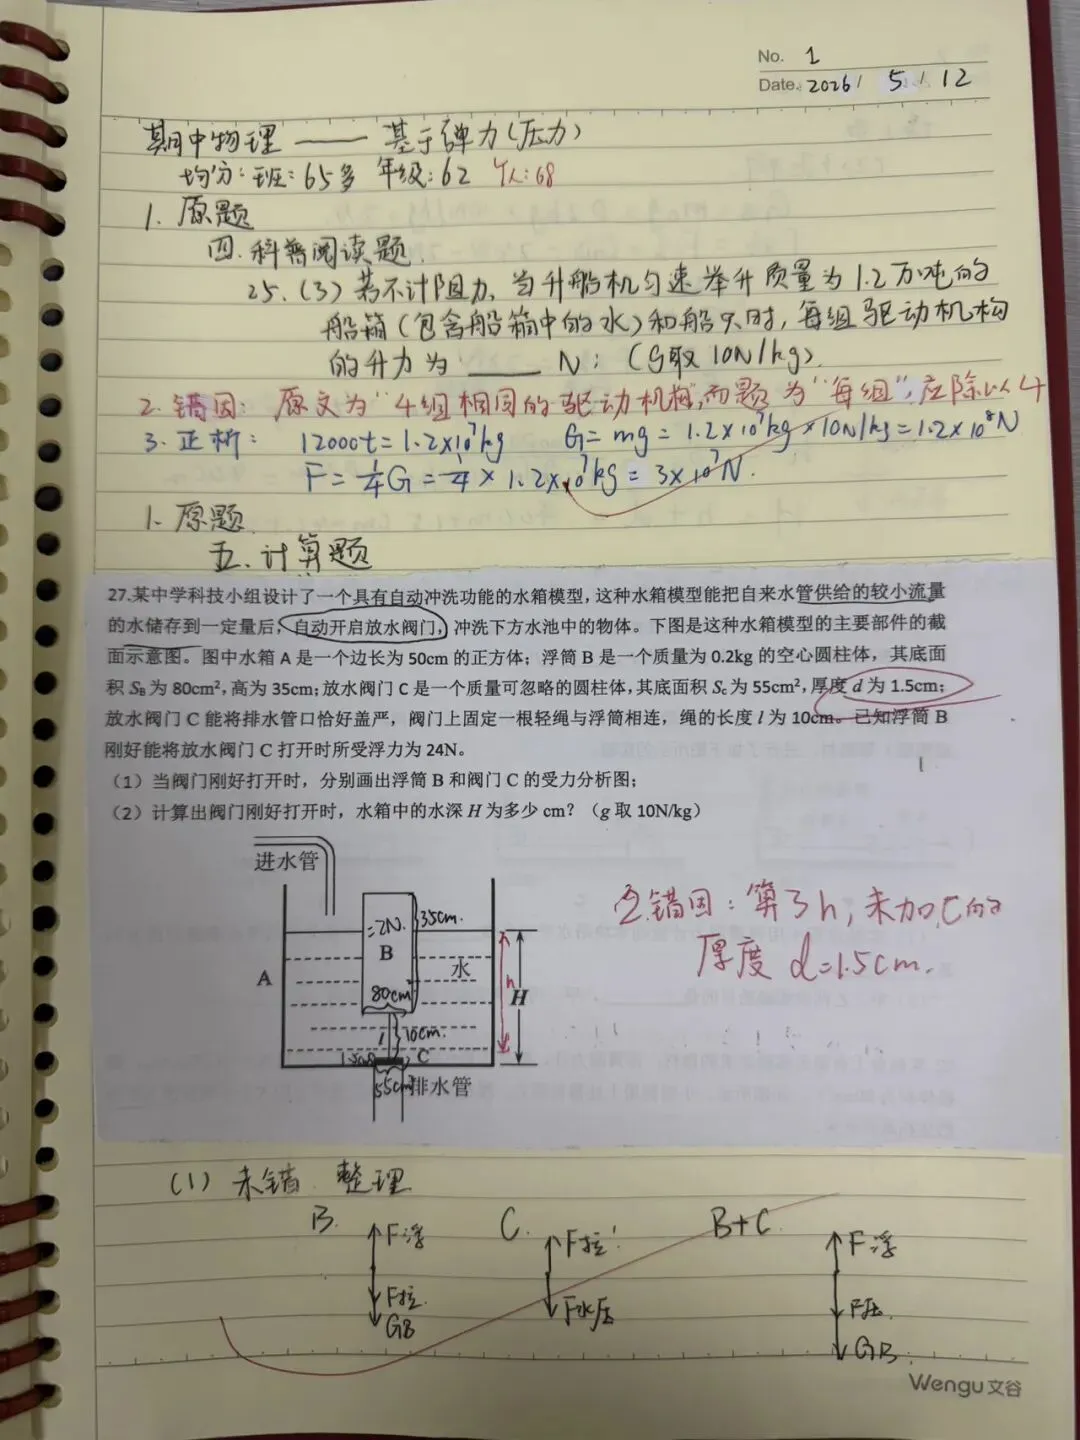 No. 1
Date. 2026 / 5 / 12
期中物理 —— 基于弹力(压力)
均分: 班: 65多 年级: 62 个人: 68
1. 原题
四. 科普阅读题.
25. (3) 若不计阻力, 当升船机匀速举升质量为1.2万吨的
船箱(包含船箱中的水)和船只时, 每组驱动机构
的升力为 ____ N; (g取10N/kg).
2. 错因: 原文为"4组相同的驱动机构,而题为"每组", 应除以4
3. 正析: 12000t=1.2×10⁷kg G=mg=1.2×10⁷kg×10N/kg=1.2×10⁸N
F=¼G=¼×1.2×10⁷kg=3×10⁷N.
1. 原题
五. 计算题
27.某中学科技小组设计了一个具有自动冲洗功能的水箱模型，这种水箱模型能把自来水管供给的较小流量
的水储存到一定量后，自动开启放水阀门，冲洗下方水池中的物体。下图是这种水箱模型的主要部件的截
面示意图。图中水箱 A 是一个边长为 50cm 的正方体；浮筒 B 是一个质量为 0.2kg 的空心圆柱体，其底面
积 S_B 为 80cm²，高为 35cm；放水阀门 C 是一个质量可忽略的圆柱体，其底面积 S_C 为 55cm²，厚度 d 为 1.5cm；
放水阀门 C 能将排水管口恰好盖严，阀门上固定一根轻绳与浮筒相连，绳的长度 l 为 10cm。已知浮筒 B
刚好能将放水阀门 C 打开时所受浮力为 24N。
（1）当阀门刚好打开时，分别画出浮筒 B 和阀门 C 的受力分析图；
（2）计算出阀门刚好打开时，水箱中的水深 H 为多少 cm？（g 取 10N/kg）
进水管
=2N.
35cm.
B
A
水
80cm²
h
H
l
10cm.
1.5cm
C
55cm²
排水管
2.错因: 算了h, 未加C的
厚度 d=1.5cm.
(1) 未错 整理
B. C. B+C.
F浮 F拉' F浮
F拉. F水压 F压.
GB GB.
Wengu 文谷